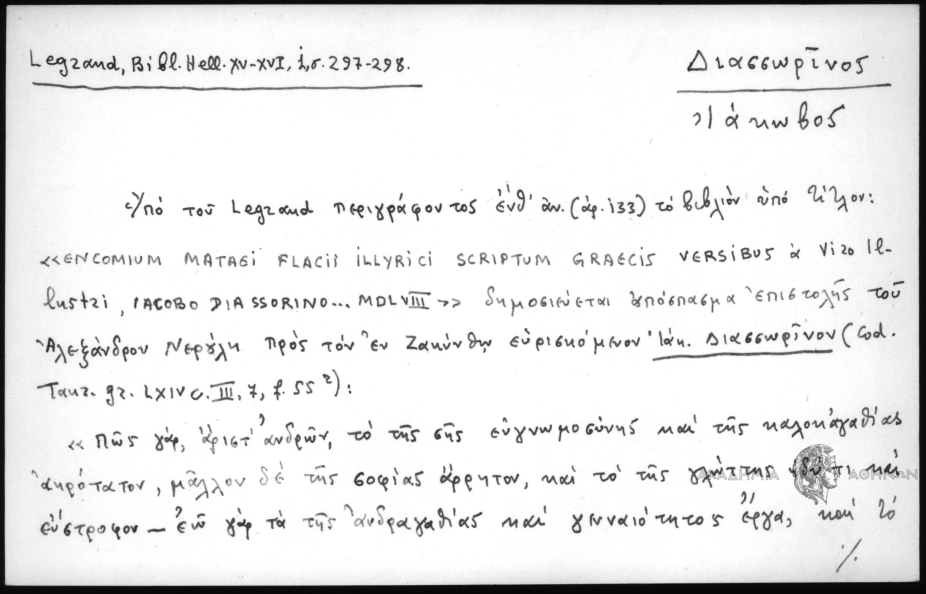 Legrand, Bibl. Hell. XV-XVI, i, σ. 297-298.
Διασσωρῖνος
Ἰάκωβος
Ὑπό τοῦ Legrand περιγράφοντος ἐνθ' ἀν. (ἀρ. 133) τό βιβλιόν ὑπό τίτλον:
«ENCOMIUM MATAEI FLACII ILLYRICI SCRIPTUM GRAECIS VERSIBUS à Viro Il-
lustri, IACOBO DIASSORINO... MDLVIII» δημοσιεύεται ἀπόσπασμα ἐπιστολῆς τοῦ
Ἀλεξάνδρου Νερούλη πρός τόν ἐν Ζακύνθῳ εὑρισκόμενον Ἰάκ. Διασσωρῖνον (Cod.
Taur. gr. LXIV c. III, 7, f. 55 2):
« Πῶς γάρ, ἄριστ' ἀνδρῶν, τό τῆς σῆς εὐγνωμοσύνης καί τῆς καλοκἀγαθίας
ἀκρότατον, μᾶλλον δέ τῆς σοφίας ἄρρητον, καί τό τῆς γλώττης ἡδύ τι καί
εὔστροφον – ἐῶ γάρ τά τῆς ἀνδραγαθίας καί γενναιότητος ἔργα, καί τό
./.
ΑΚΑΔΗΜΙΑ ΑΘΗΝΩΝ